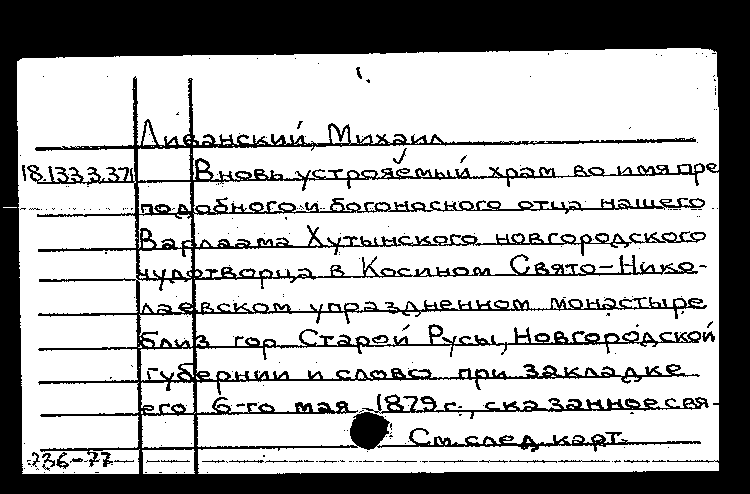 1.
Ливанский, Михаил
18.133.3.371 Вновь устрояемый храм во имя пре
подобного и богоносного отца нашего
Варлаама Хутынского новгородского
чудотворца в Косином Свято-Нико-
лаевском упраздненном монастыре
близ гор. Старой Русы, Новгородской
губернии и слово при закладке
его 6-го мая 1879 г., сказанное свя-
См. след. карт.
236-77